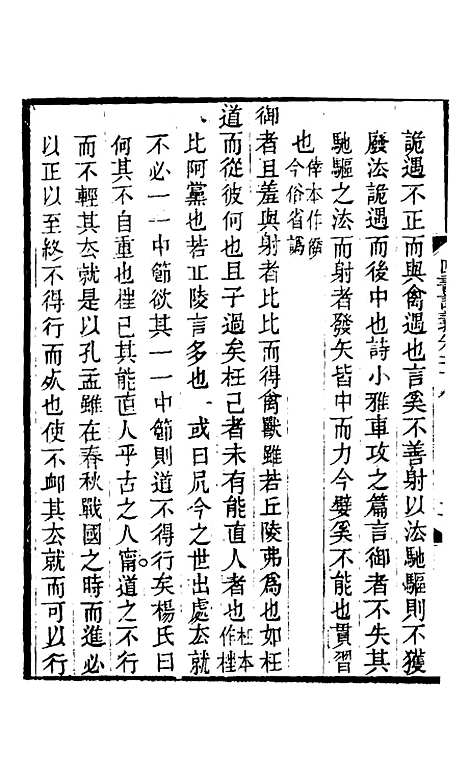 詭遇不正而與禽遇也言奚不善射以法馳驅則不獲
廢法詭遇而後中也詩小雅車攻之篇言御者不失其
馳驅之法而射者發矢皆中而力今嬖奚不能也貫習
也 倖本作𠊓 今俗省譌
御者且羞與射者比比而得禽獸雖若丘陵弗爲也如枉
道而從彼何也且子過矣枉己者未有能直人者也 枉本 作㮂
比阿黨也若丘陵言多也 或曰凥今之世出處厺就
不必一一中節欲其一一中節則道不得行矣楊氏曰
何其不自重也㮂已其能直人乎古之人甯道之不行
而不輕其厺就是以孔孟雖在春秋戰國之時而進必
以正以至終不得行而𣦸也使不卹其厺就而可以行